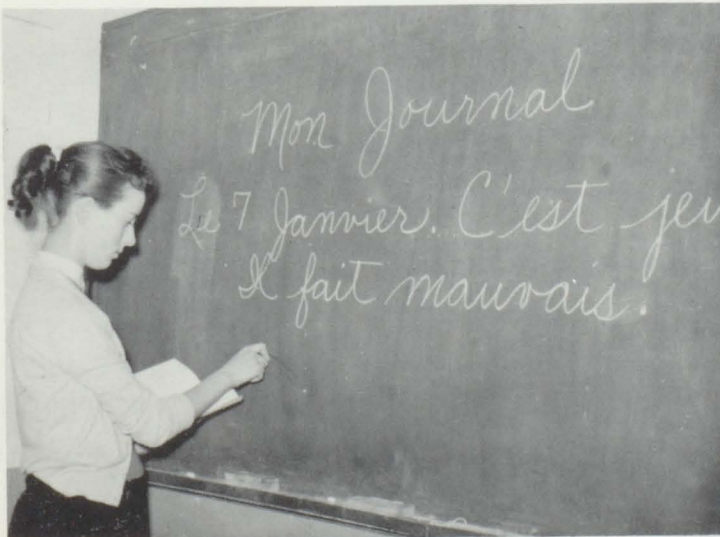 Mon Journal
Le 7 Janvier. C'est jeu
Il fait mauvais.